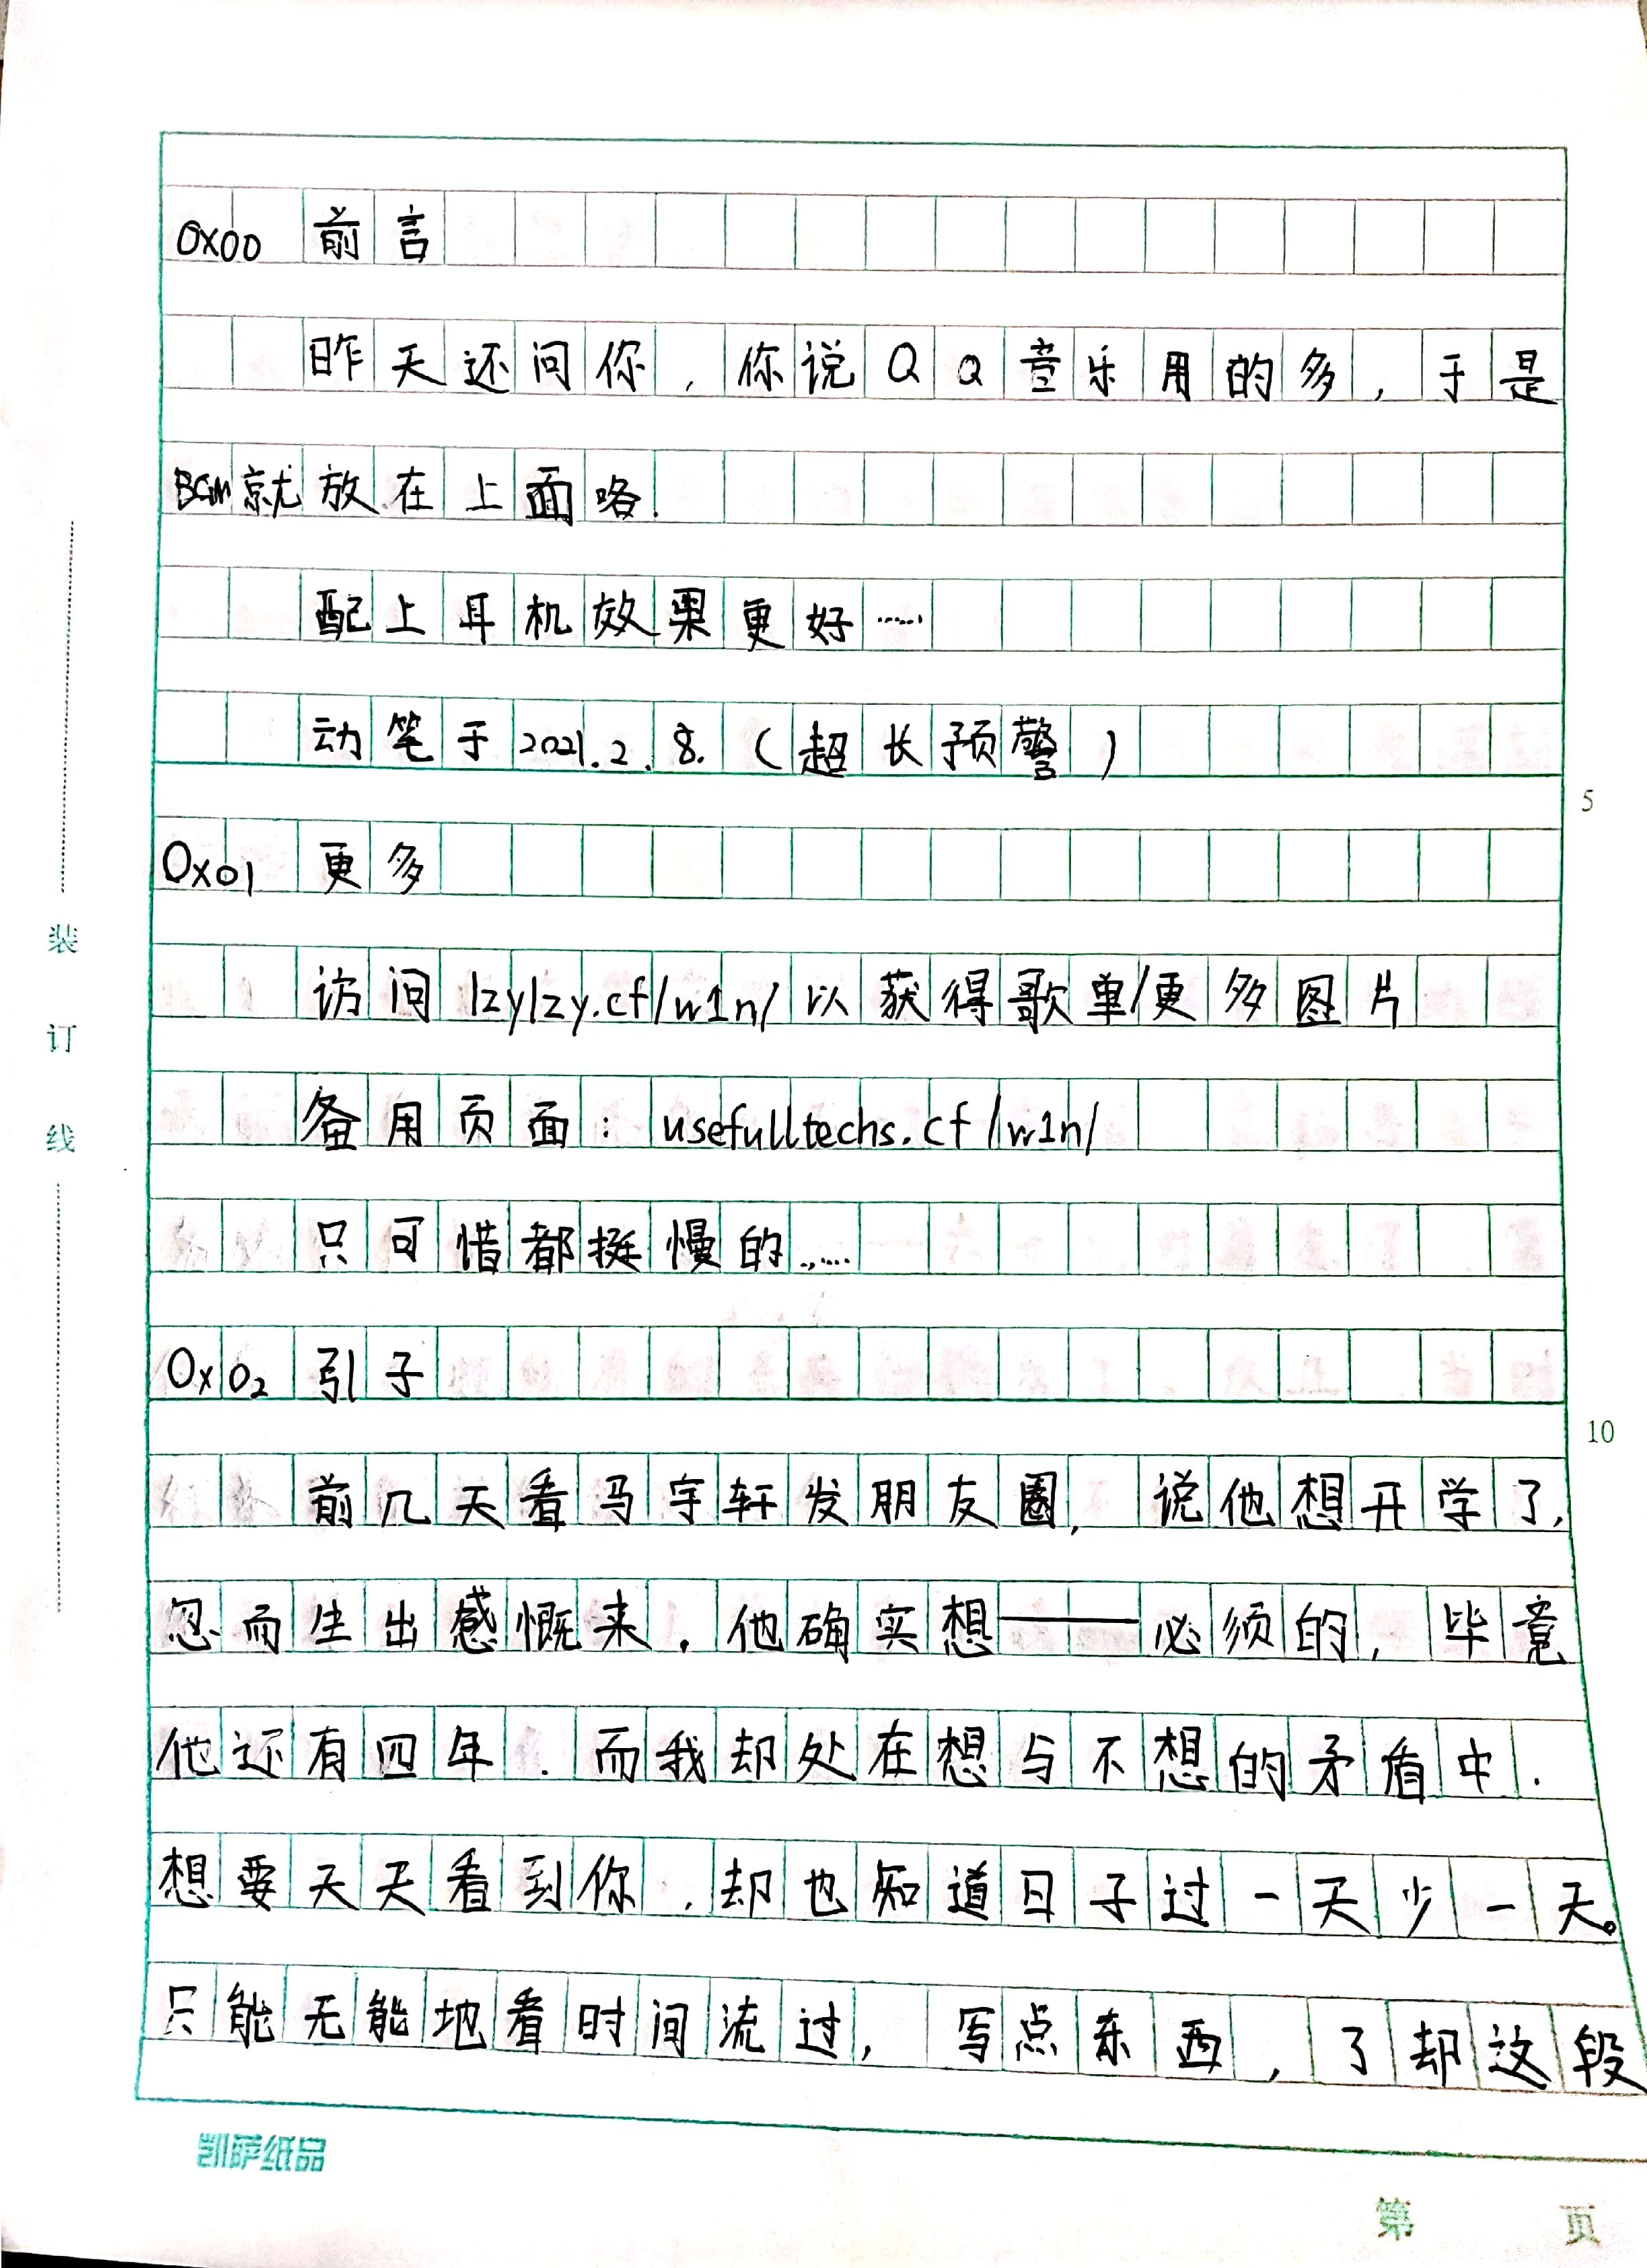 0x00 前言
昨天还问你，你说QQ音乐用的多，于是
BGM就放在上面咯.
配上耳机效果更好……
动笔于2021.2.8.（超长预警）
5
0x01 更多
访问 lzylzy.cf/w1n/ 以获得歌单/更多图片
备用页面：usefulltechs.cf/w1n/
只可惜都挺慢的……
0x02 引子
10
前几天看马宇轩发朋友圈，说他想开学了，
忽而生出感慨来.他确实想——必须的，毕竟
他还有四年.而我却处在想与不想的矛盾中.
想要天天看到你，却也知道日子过一天少一天。
只能无能地看时间流过，写点东西，了却这段
装订线
凯萨纸品
第 页